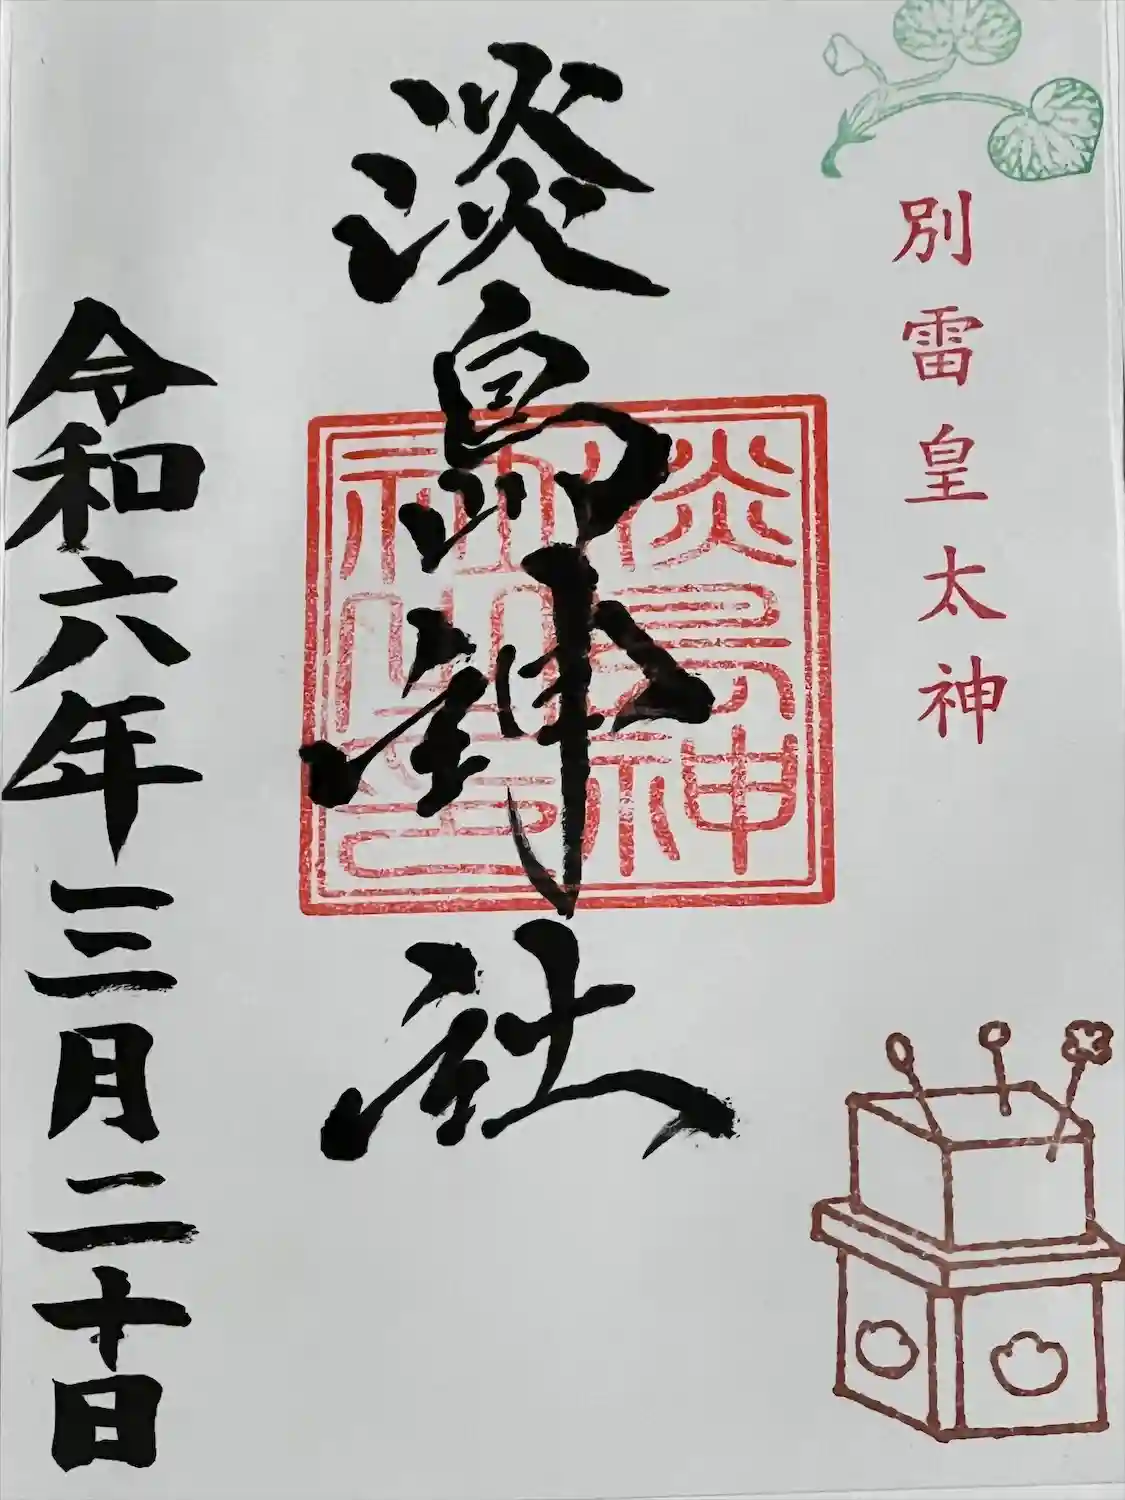 別雷皇太神
淡島神社
淡島神社之印
令和六年三月二十日